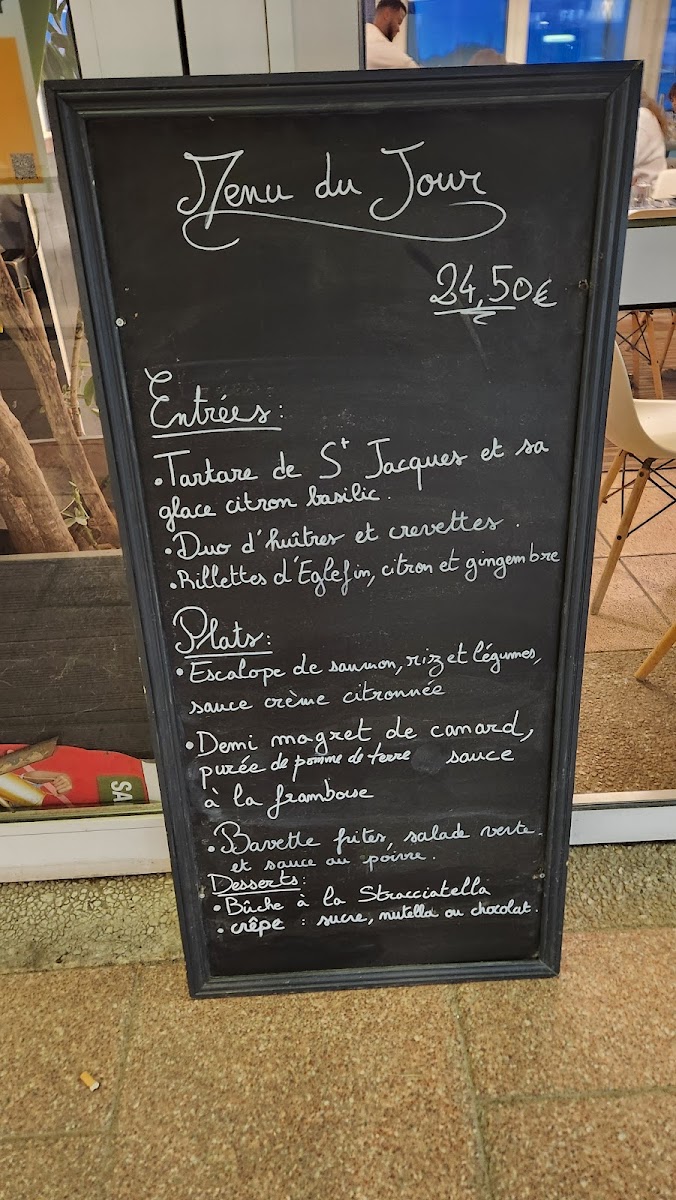 Menu du Jour
24,50€
Entrées:
• Tartare de St Jacques et sa
glace citron basilic.
• Duo d'huîtres et crevettes.
• Rillettes d'Eglefin, citron et gingembre
Plats:
• Escalope de saumon, riz et légumes,
sauce crème citronnée
• Demi magret de canard,
purée de pomme de terre sauce
à la framboise
• Bavette frites, salade verte
et sauce au poivre.
Desserts:
• Bûche à la Stracciatella
• crêpe : sucre, nutella ou chocolat.
SA